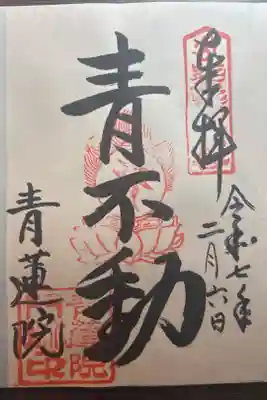 奉拝
令和七年
二月六日
青不動
青蓮院